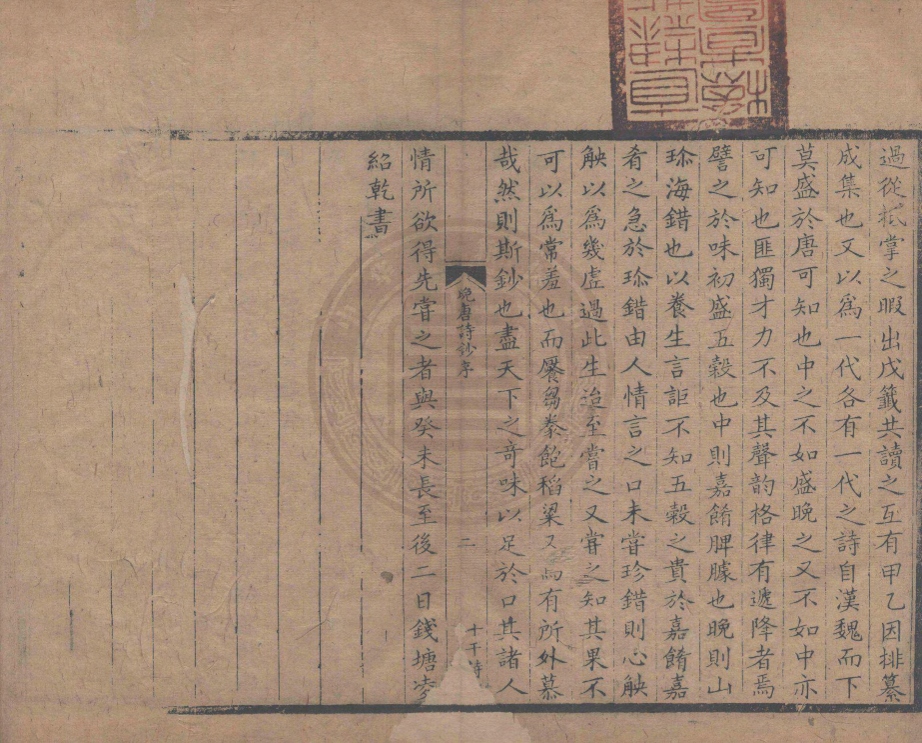 過從抵掌之暇出戊籤共讀之互有甲乙因排纂
成集也又以爲一代各有一代之詩自漢魏而下
莫盛於唐可知也中之不如盛晚之又不如中亦
可知也匪獨才力不及其聲韵格律有遞降者焉
譬之於味初盛五穀也中則嘉餚脾臄也晚則山
珎海錯也以養生言詎不知五穀之貴於嘉餚嘉
肴之急於珎錯由人情言之口未嘗珍錯則心觖
觖以爲幾虛過此生迨至嘗之又甞之知其果不
可以爲常羞也而饜芻豢飽稻粱又有所外慕
哉然則斯鈔也盡天下之奇味以足於口其諸人
晚唐詩鈔序
二
十干詩
情所欲得先甞之者與癸未長至後二日錢塘凌
紹乾書